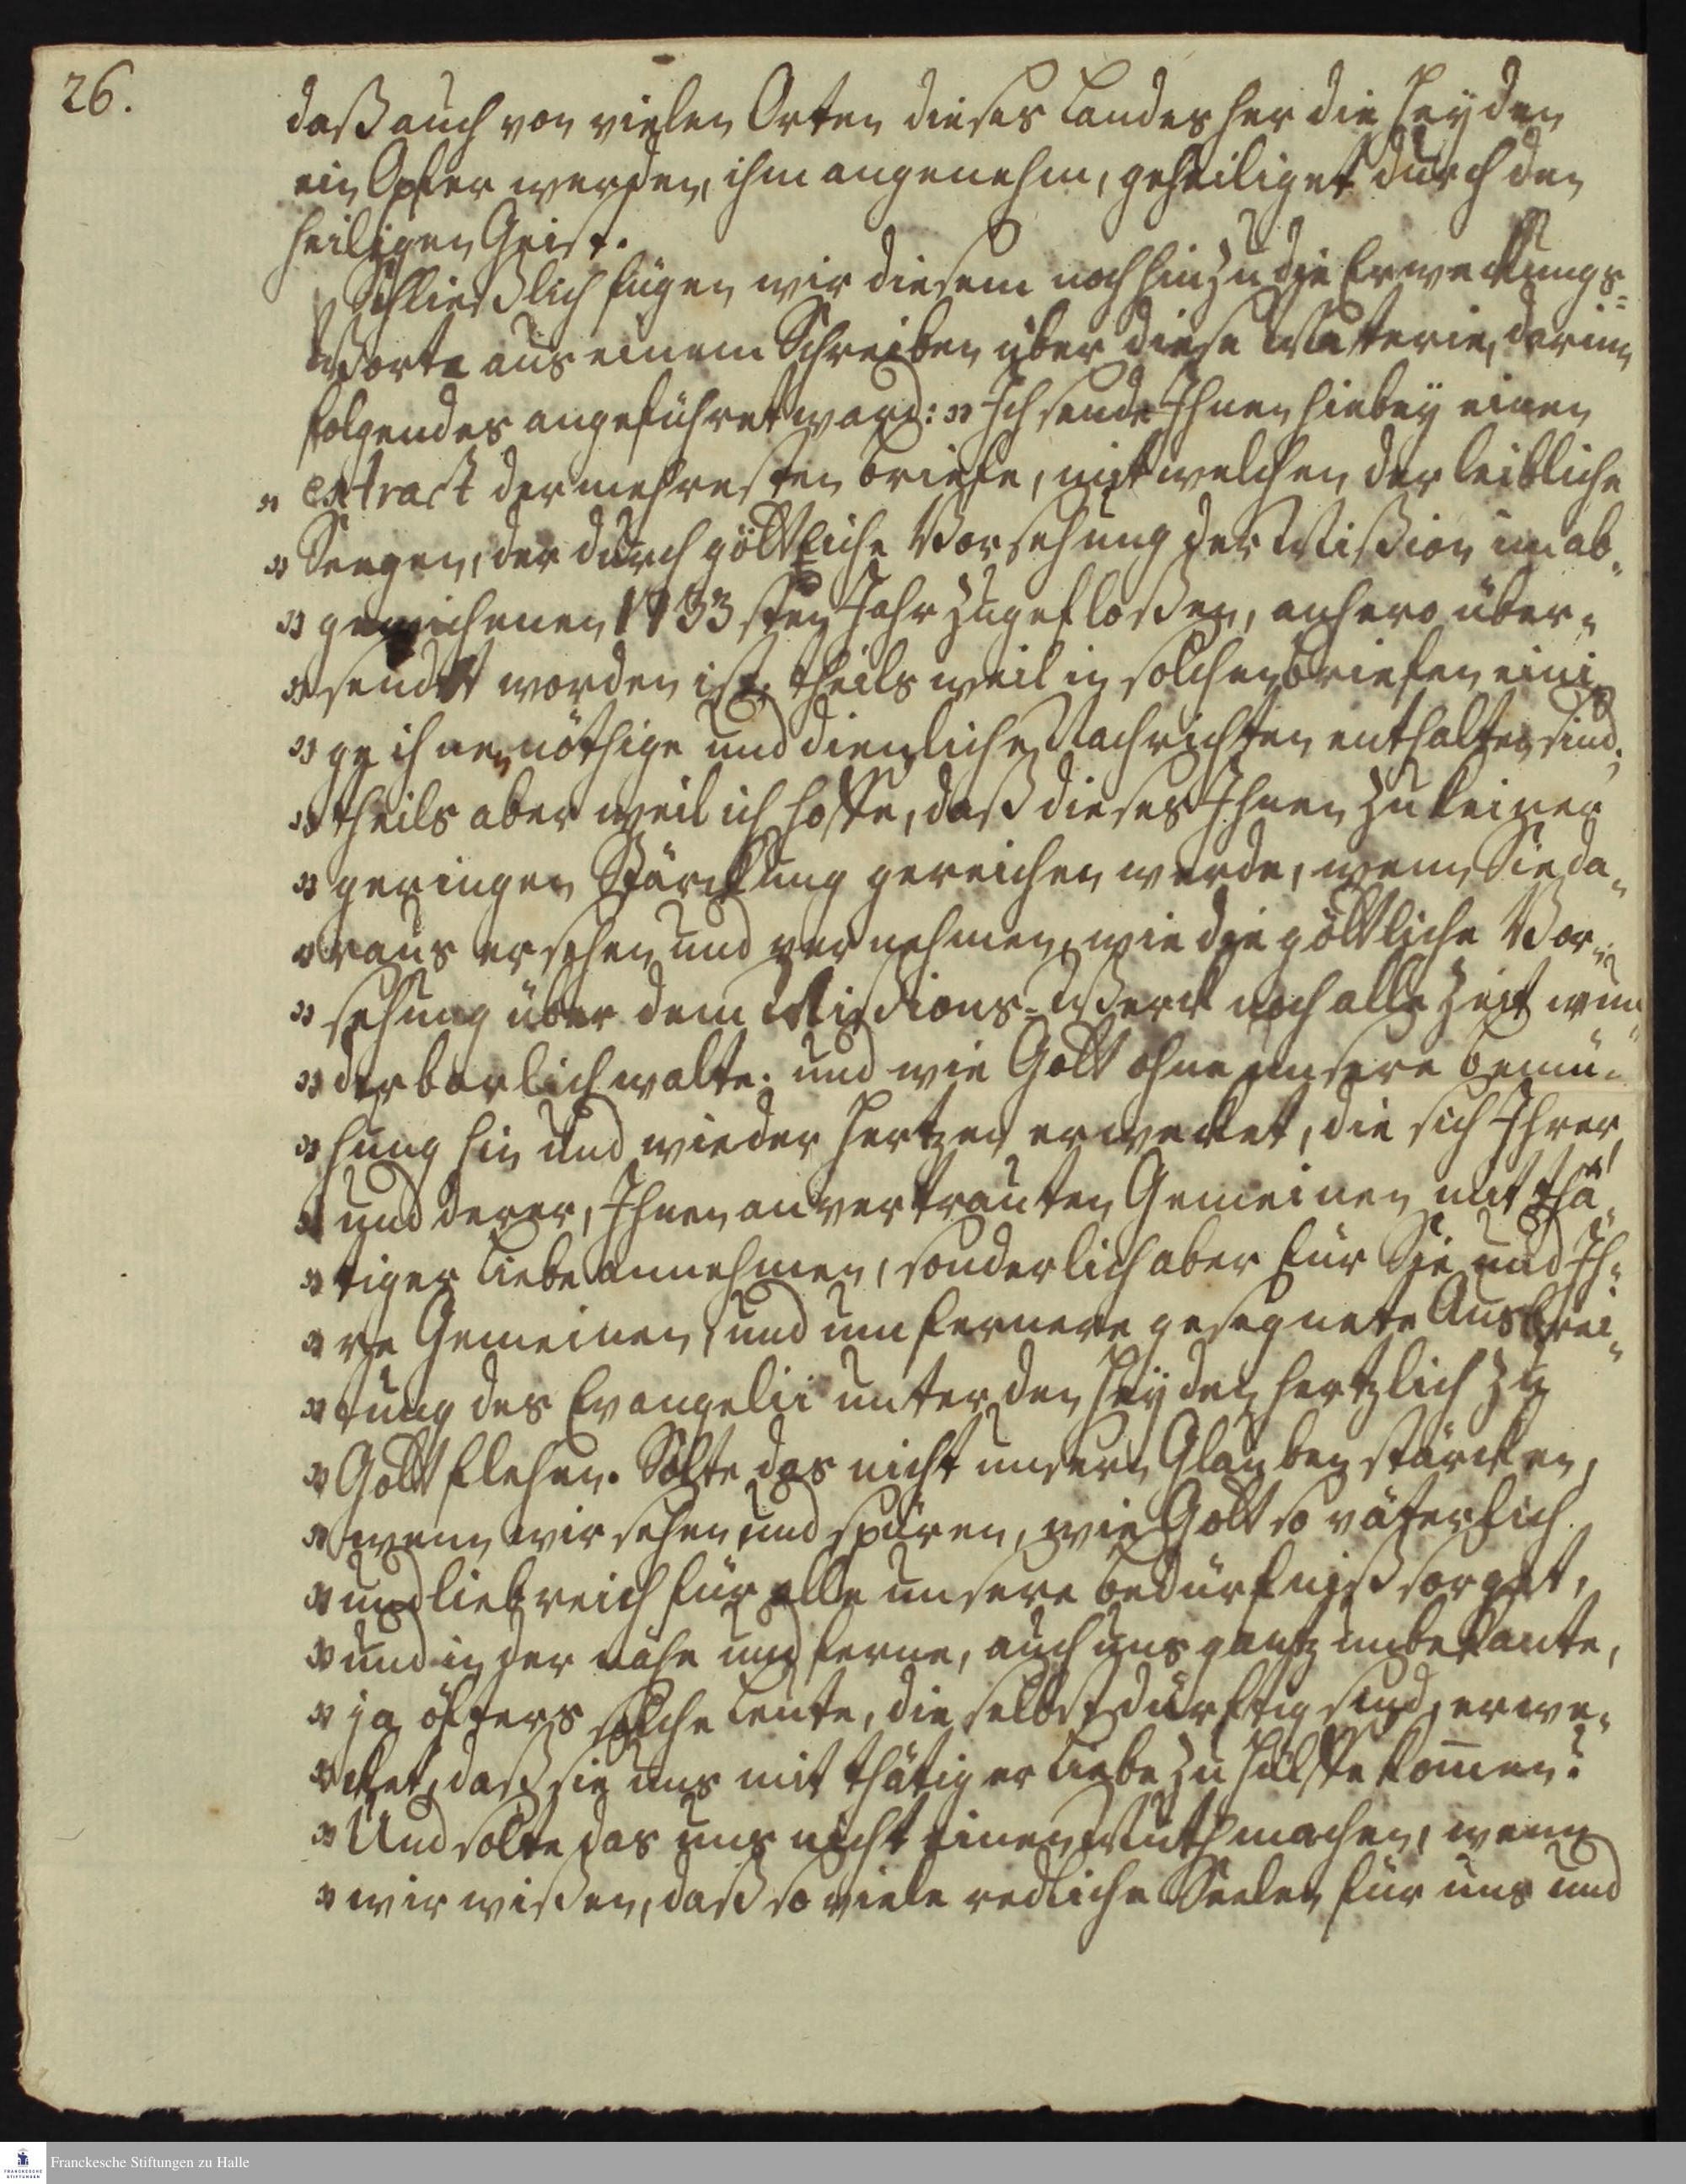 26.
daß auch von vielen Orten dieses Landes her die Heyden
ein Opfer werden, ihm angenehm, geheiliget durch den
heiligen Geist.
Schließlich fügen wir diesem noch hinzu die Erweckungs=
Worte aus einem Schreiben über diese Materie, darinn
folgendes angeführet ward: „Ich sende Ihnen hiebey einen
„ extract der mehresten Briefe, mit welchen der leibliche
„ Seegen, der durch göttliche Vorsehung der Mißion im ab„
„ gewichenen 1733sten Jahr zugefloßen, anhero über„
„ sendet worden ist; theils weil in solchen Briefen eini„
„ ge ihnen nöthige und dienliche Nachrichten enthalten sind;
„ theils aber weil ich hoffe, daß dieses Ihnen zu keiner
„ geringen Stärckung gereichen werde, wenn Sie da„
„ raus ersehen und vernehmen, wie die göttliche Vor„
„ sehung über dem Missions=Werck noch alle Zeit wun„
„ derbarlich walte; und wie Gott ohne unsere Bemü„
„ hung hin und wieder Hertzen erwecket, die sich Ihrer,
„ und derer, Ihnen anvertrauten Gemeinen mit thä„
„ tiger Liebe annehmen, sonderlich aber für Sie und Ih„
„ re Gemeinen, und um fernere gesegnete Ausbrei„
„ tung des Evangelii unter den Heyden hertzlich zu
„ Gott flehen. Solte das nicht unsern Glauben stärcken,
„ wenn wir sehen und spüren, wie Gott so väterlich
„ und liebreich für alle unsere Bedürfniß sorget,
„ und in der nähe und ferne, auch uns gantz unbekante,
„ ja öfters solche Leute, die selbst dürftig sind, erwe„
„ cket, daß sie uns mit thätiger Liebe zu Hülffe kom̅en?
„ Und solte das uns nicht einen Muth machen, wenn
„ wir wißen, daß so viele redliche Seelen für uns und
Franckesche Stiftungen zu Halle
FRANCKESCHE
STIFTUNGEN